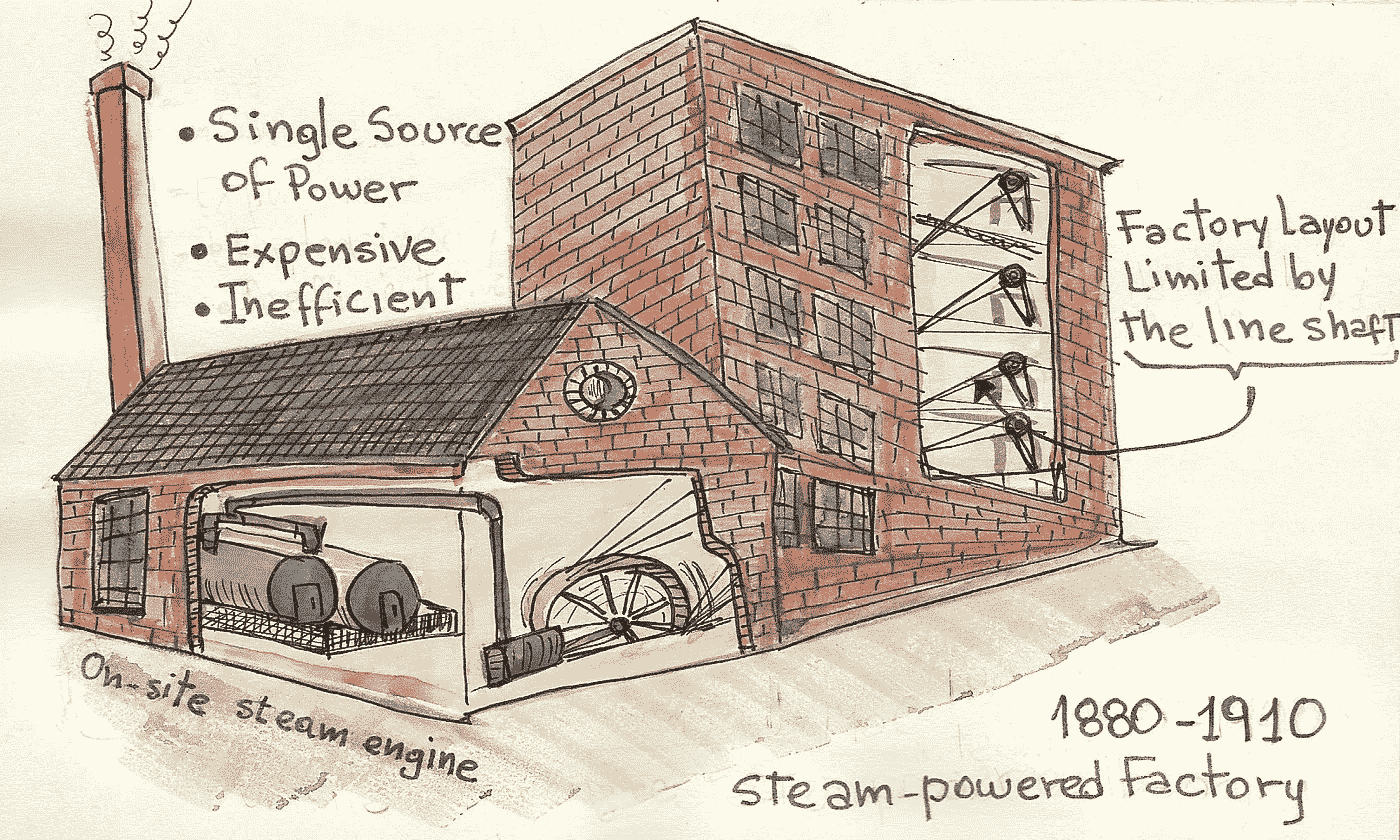 • Single Source
of Power
• Expensive
• Inefficient
Factory Layout
Limited by
the line shaft
On-site steam engine
1880-1910
steam-powered Factory